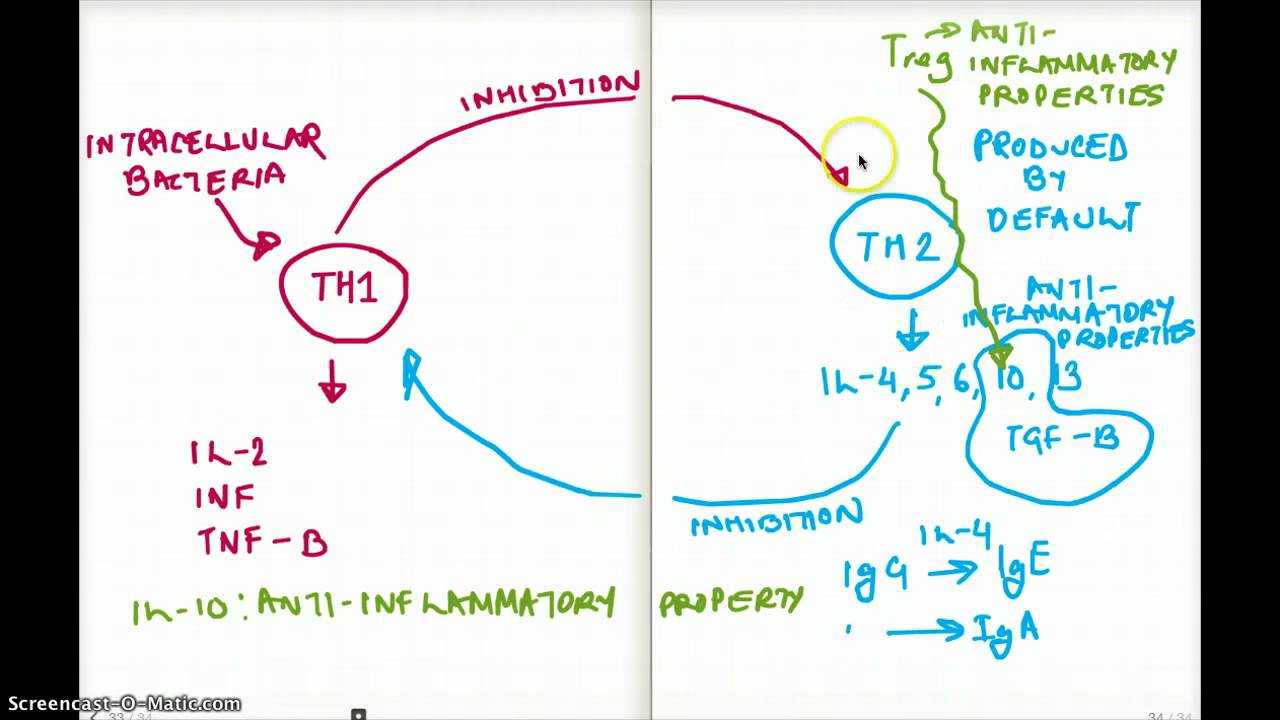 INHIBITION
INTRACELLULAR
BACTERIA
TH1
IL-2
INF
TNF-B
IL-10: ANTI-INFLAMMATORY PROPERTY
Treg → ANTI-
INFLAMMATORY
PROPERTIES
PRODUCED
BY
DEFAULT
TH2
ANTI-
INFLAMMATORY
PROPERTIES
IL-4, 5, 6, 10, 13
TGF-B
INHIBITION
IL-4
IgG → IgE
→ IgA
Screencast-O-Matic.com
33 / 34
34 / 34